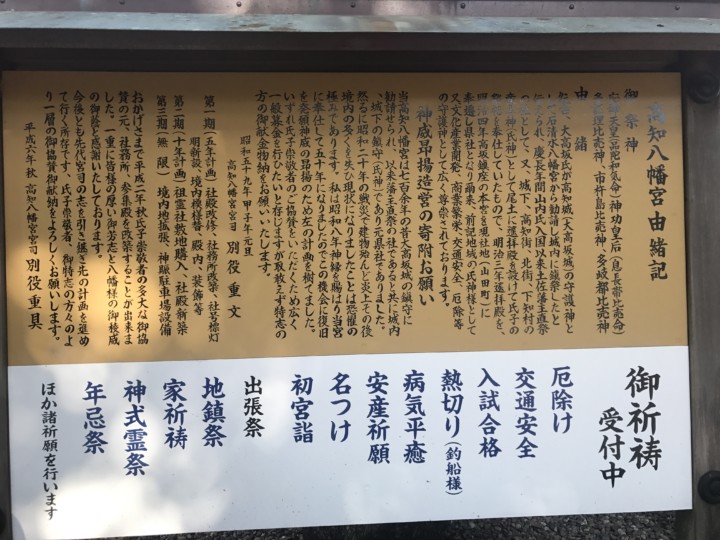 高知八幡宮由緒記
御祭神
応神天皇(品陀和気命)神功皇后(息長帯比売命)
多紀理比売神、市杵島比売神、多岐都比売神
由緒
て石清水八幡宮から勧請し城内に鎮祭したと
伝えられ、慶長年間山内氏入国以来土佐藩主直祭
の社として、又、城下、高知街、北街、下知村の
産土神(氏神)として尾土に遥拝殿を設けて氏子の
明治四年高坂鎮座の本宮を現社地(山田町)に
奉遷し県社となり爾来、前記地域の氏神様として
又文化産業開発、商業繁栄、交通安全、厄除等
の守護神として広く尊崇されております。
神威昂揚造営の寄附お願い
当高知八幡宮は七百余年の昔大高城の鎮守に
勧請せられ、以来藩主直祭の社であると共に城内
、城下の鎮守(氏神)である元県社でありました。
然るに昭和二十年の戦災で建物殆んど炎上その後
境内の多くを失ひ現状になりましたことは恐懼の
極みであります。私は昭和八年神縁を賜はり当宮
に奉仕して五十年になりましたのでこの機会に復旧
を発願神威の昂揚のため左の計画を樹てました。
いずれ氏子崇敬者のご協賛をいただくため広く
一般募金を行ひたいと存じますが取敢えず特志の
方の御献金物納をお願いいたします。
昭和五十九年甲子年元旦
高知八幡宮宮司 別役重文
第一期(五年計画)社殿改修、社務所改築、社号標灯
明新設、境内模様替、殿内、装飾等
第二期(十年計画)祖霊社敷地購入、社殿新築
第三期(無限)境内地拡張、神賑駐車場設備
おかげさまで平成二年秋氏子崇敬者の多大な御協
賛の元、社務所、参集殿を改築することが出来ま
した。一重に皆様の厚い御芳志と八幡様の御検威
の御蔭と感謝いたしております。
今後とも先代宮司の志を引き継ぎ先の計画を進め
て行く所存です。氏子崇敬者、御特志の方々のよ
り一層の御協賛御献納をよろしくお願いします。
平成六年秋 高知八幡宮宮司 別役重具
御祈祷
受付中
厄除け
交通安全
入試合格
熱切り(釣船様)
病気平癒
安産祈願
名つけ
初宮詣
出張祭
地鎮祭
家祈祷
神式霊祭
年忌祭
ほか諸祈願を行います